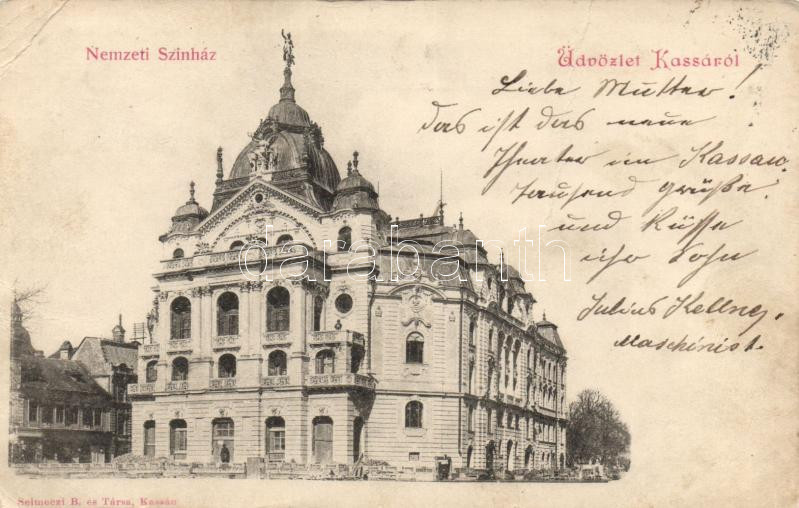 Nemzeti Szinház
Üdvözlet Kassáról
Liebe Mutter!
das ist das neue
Theater in Kassau.
tausend grüße
und Küsse
ihr Sohn
Julius Kellner,
Maschinist.
darabanth
Selmeczi B. és Társa, Kassán